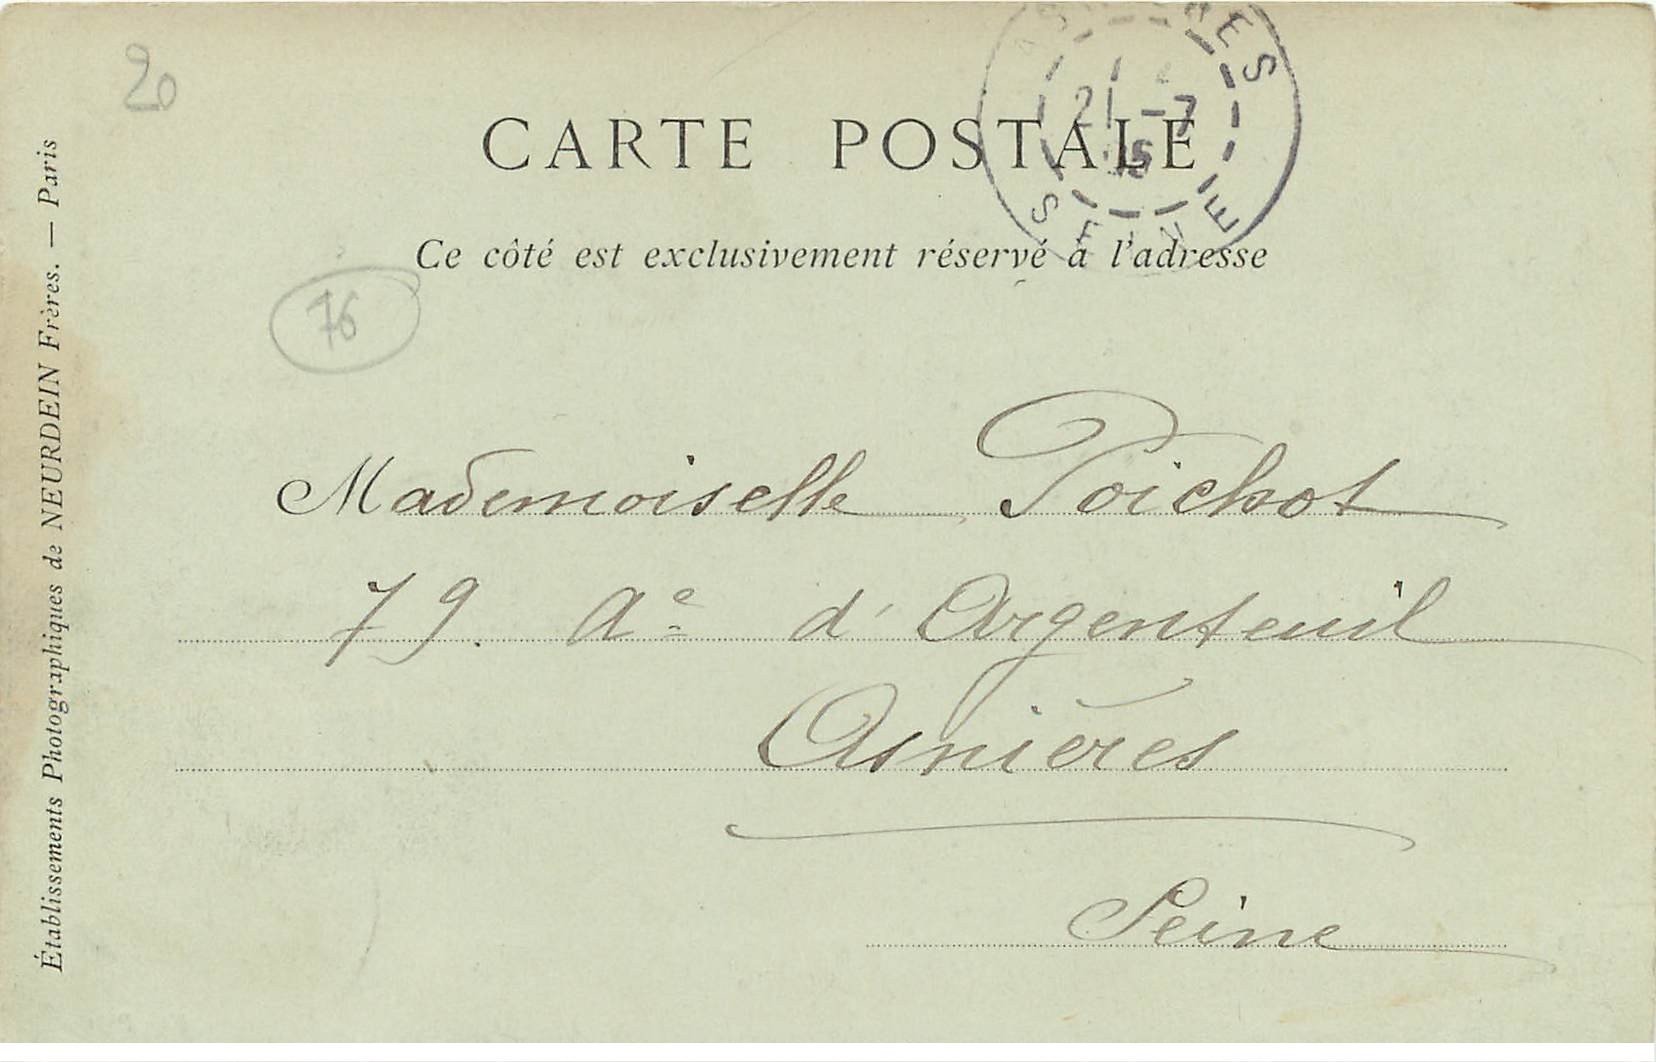 20
CARTE POSTALE
Ce côté est exclusivement réservé à l'adresse
21 -7
SEINE
76
Mademoiselle Poichot
79. Ae d'Argenteuil
Asnières
Seine
Établissements Photographiques de NEURDEIN Frères. — Paris